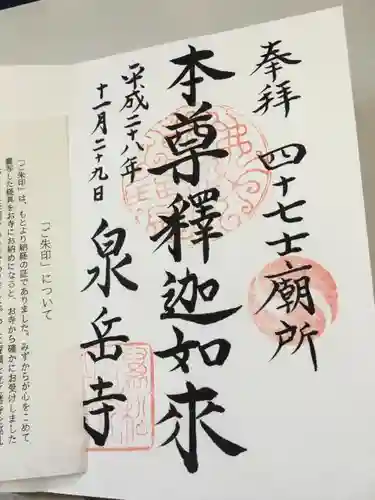 奉拝 四十七士廟所
本尊釋迦如來
平成二十八年
十一月二十九日
泉岳寺
「ご朱印」について
「ご朱印」は、もとより納経の証でありました。みずからが心をこめて
書写した経典をお寺にお納めになると、お寺から確かにお受けしました